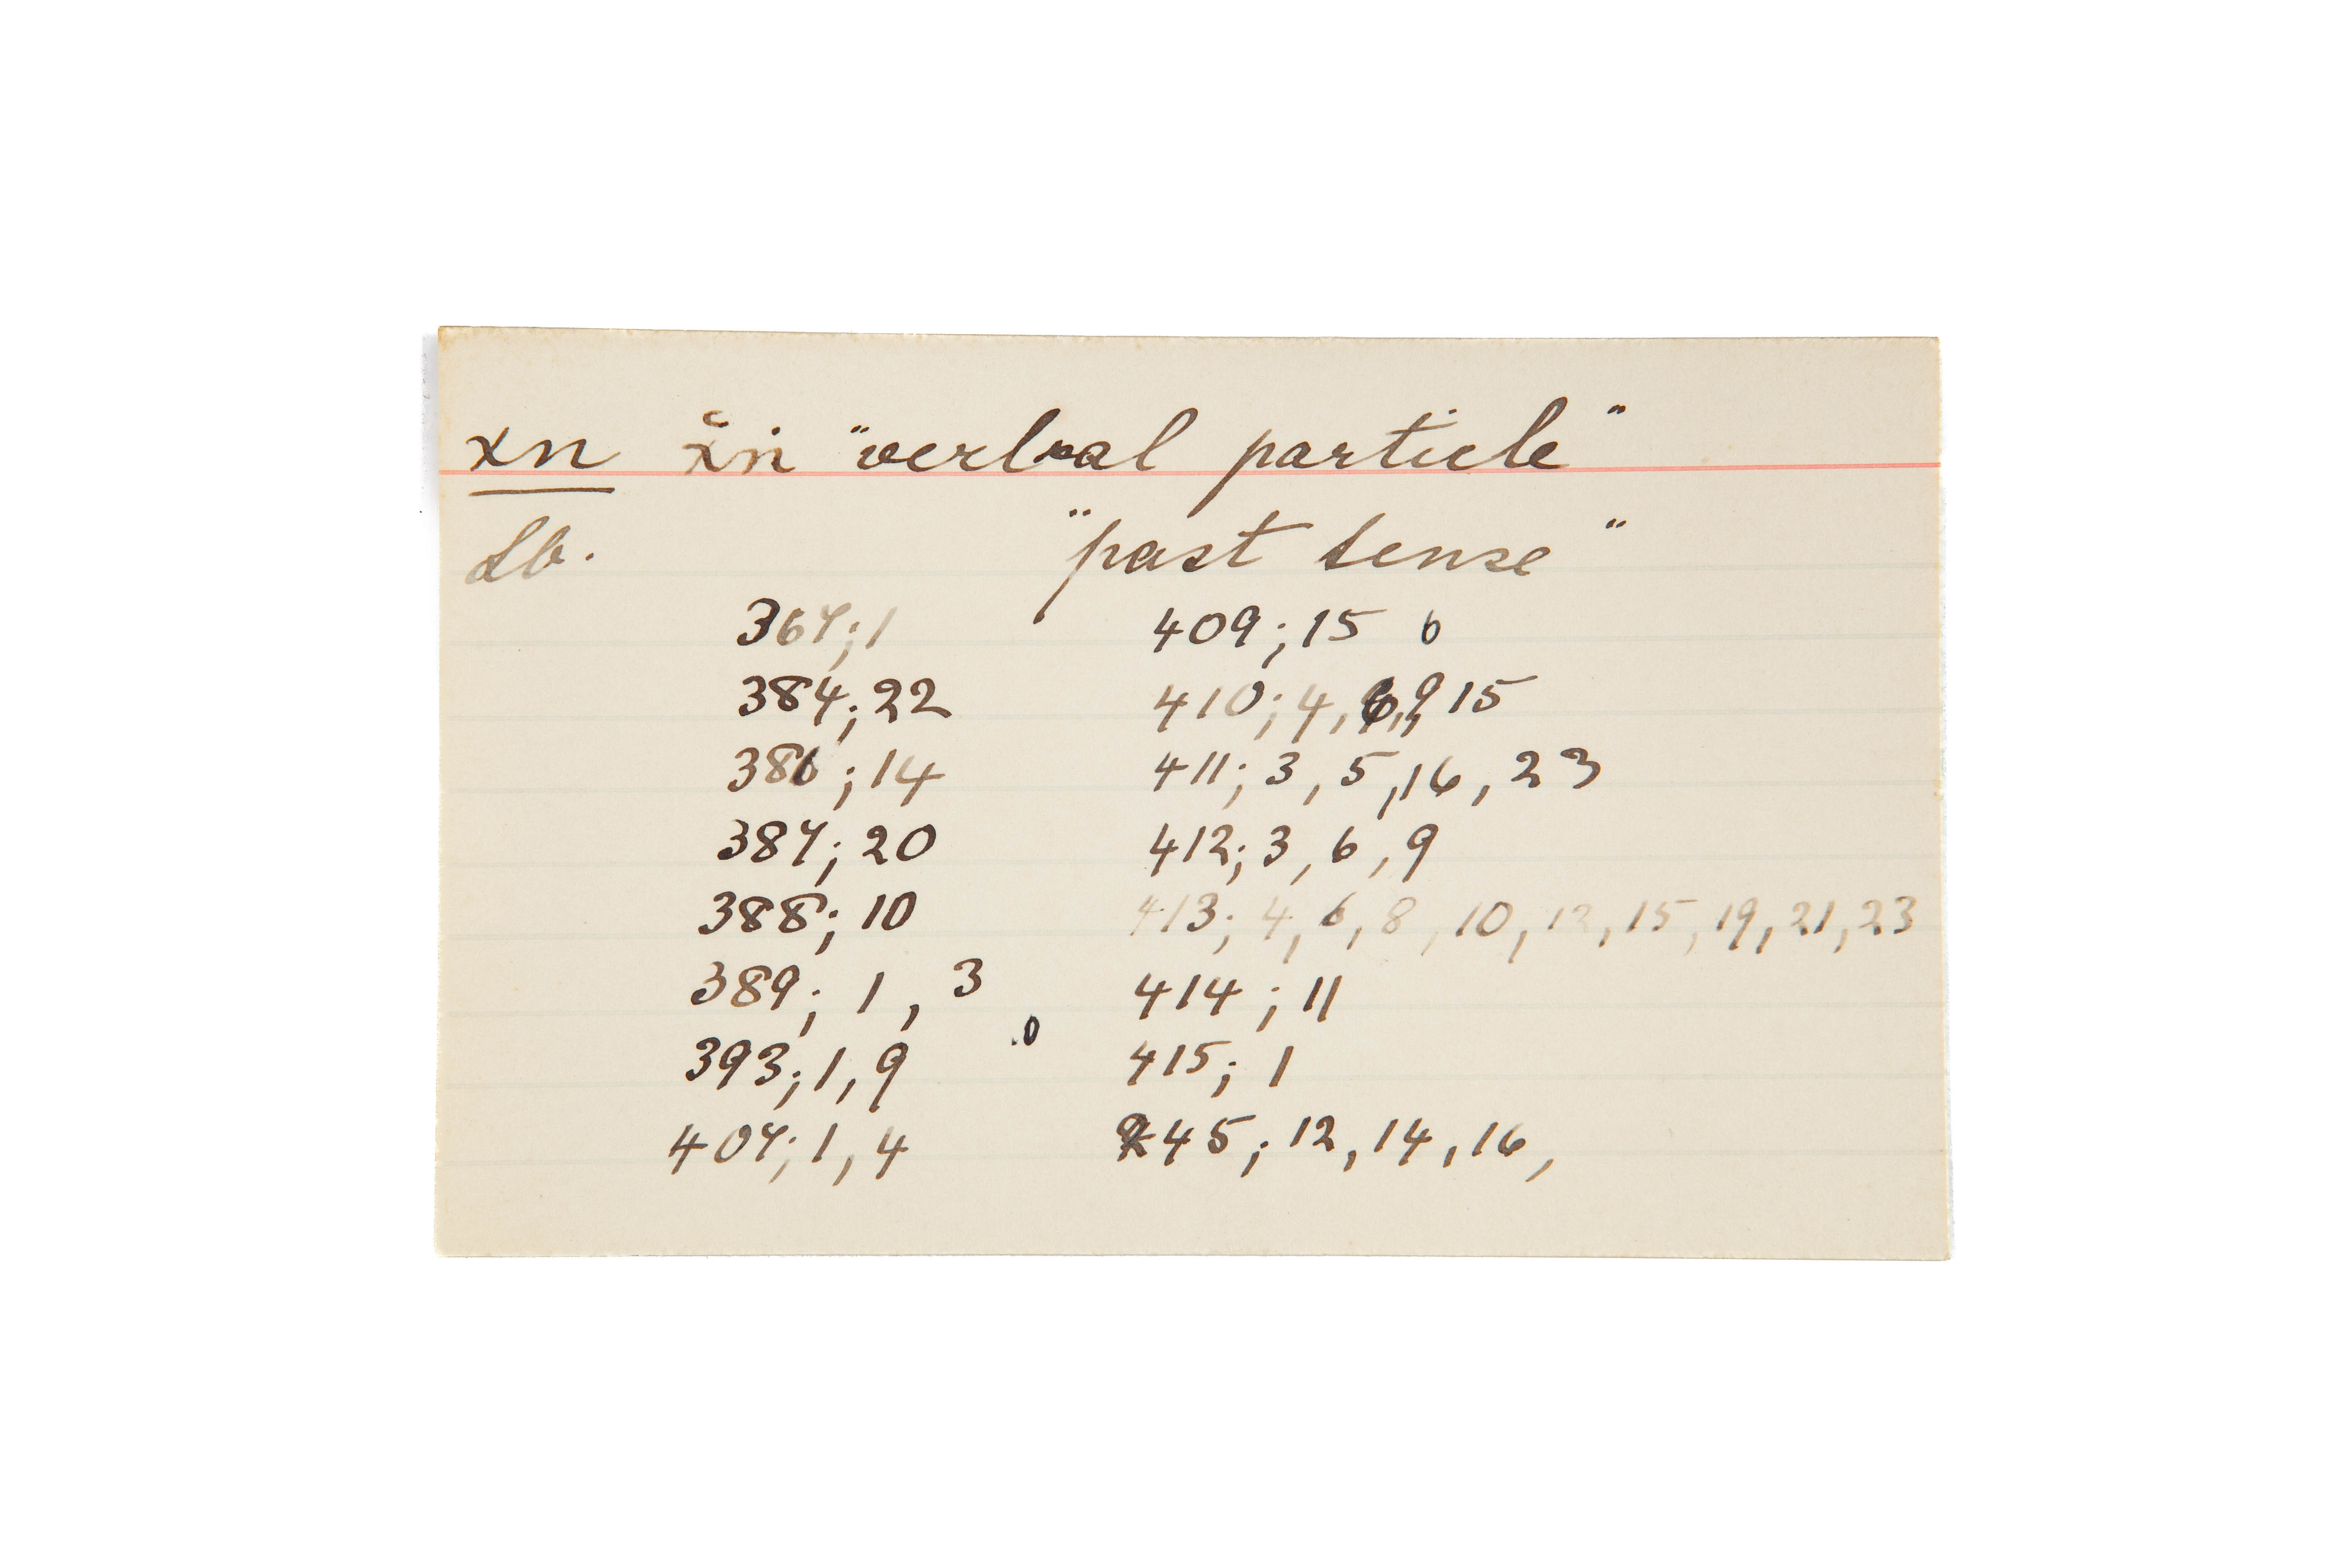 xn x̌ṅ "verbal particle"
Lb. "past tense"
367;1 409;15 6
384;22 410;4,6,9,15
386;14 411;3,5,16,23
387;20 412;3,6,9
388;10 413;4,6,8,10,12,15,19,21,23
389;1,3 414;11
393;1,9 415;1
407;1,4 45;12,14,16,